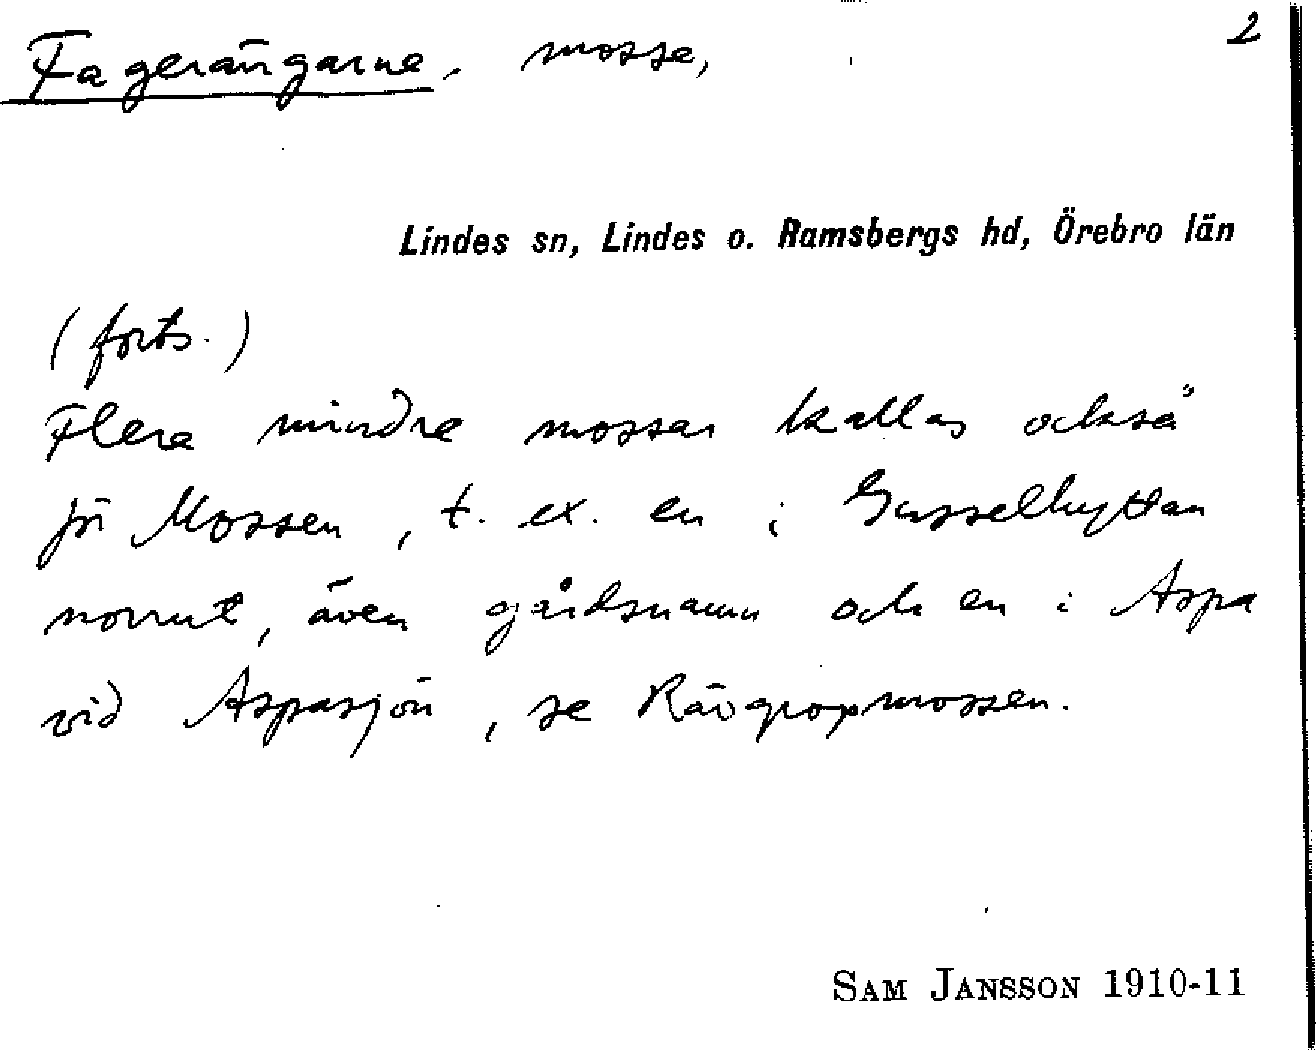 2
Fagerängarne, mosse,
Lindes sn, Lindes o. Ramsbergs hd, Örebro län
(forts.)
Flera mindre mossar kallas också
på Mossen, t. ex. en i Gusselhyttan
norrut, även gårdsnamn och en i Aspa
vid Aspasjön, se Rävgropmossen.
SAM JANSSON 1910-11